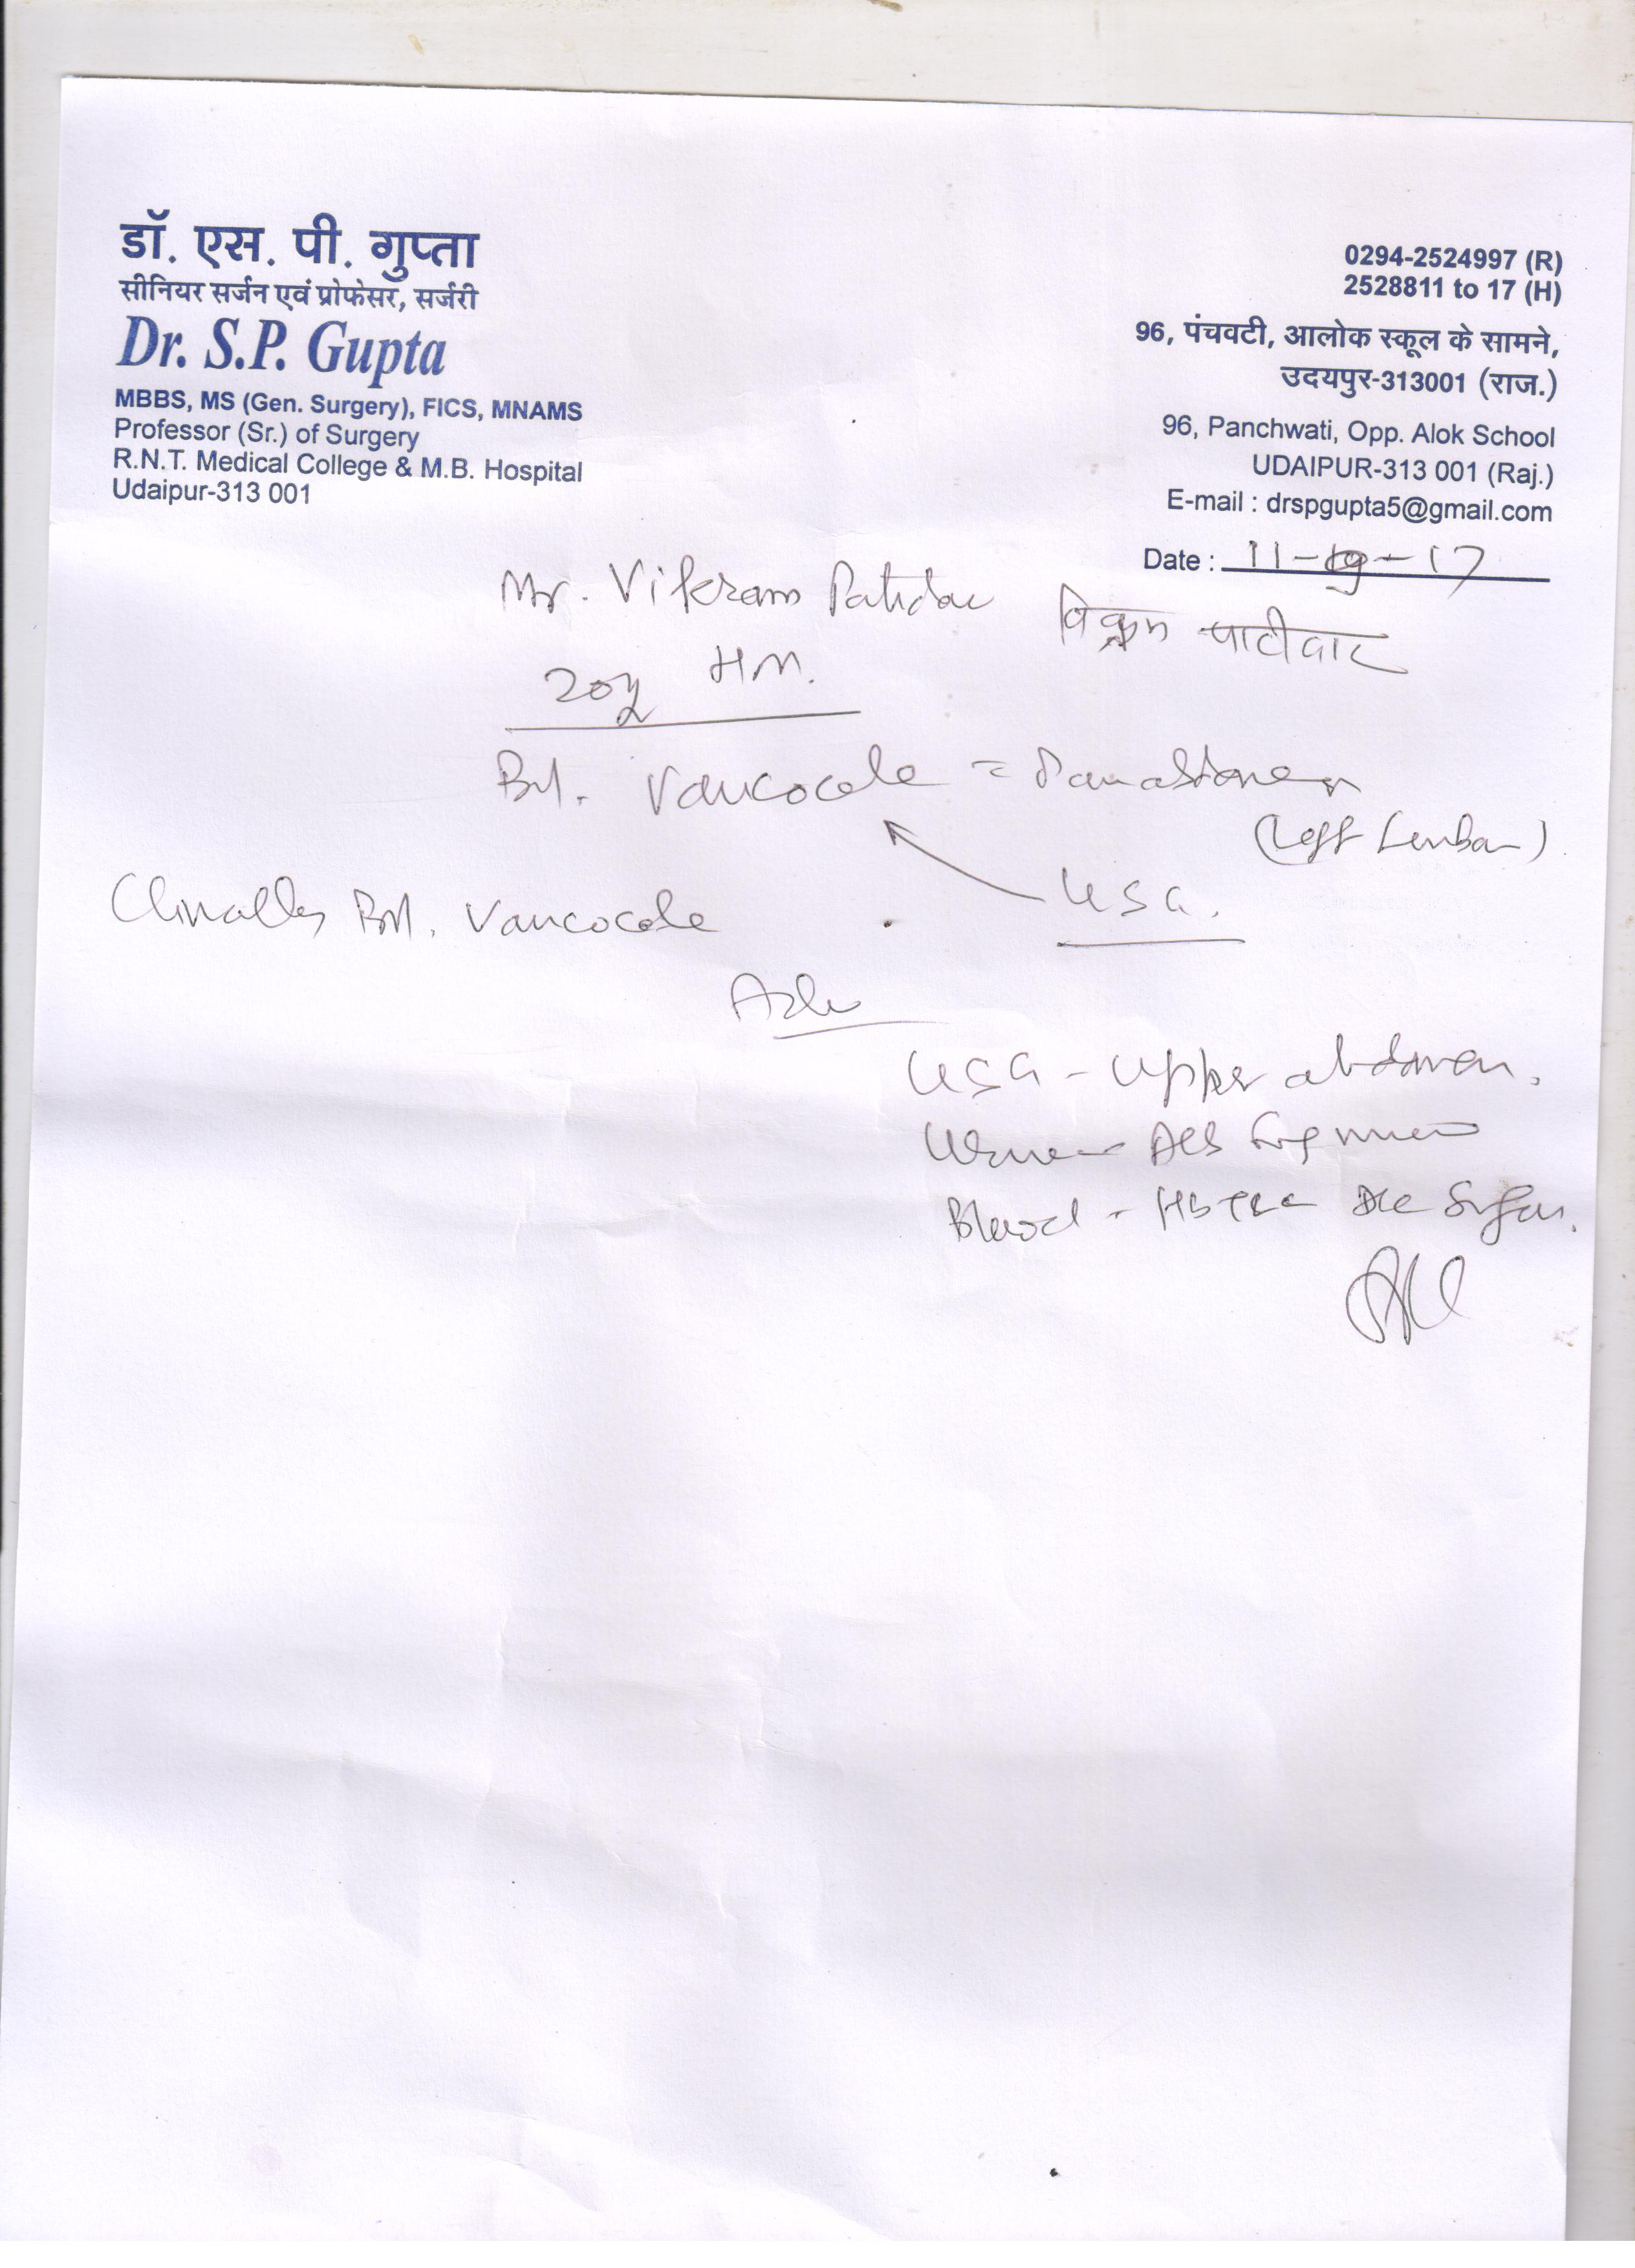 डॉ. एस. पी. गुप्ता
सीनियर सर्जन एवं प्रोफेसर, सर्जरी
Dr. S.P. Gupta
MBBS, MS (Gen. Surgery), FICS, MNAMS
Professor (Sr.) of Surgery
R.N.T. Medical College & M.B. Hospital
Udaipur-313 001
0294-2524997 (R)
2528811 to 17 (H)
96, पंचवटी, आलोक स्कूल के सामने,
उदयपुर-313001 (राज.)
96, Panchwati, Opp. Alok School
UDAIPUR-313 001 (Raj.)
E-mail : drspgupta5@gmail.com
Date : 11- -17
Mr. Vikram Patidar
20y HM.
Bil. Varicocele
(Left
USG.
Bil. Varicocele
Adv
USG - Upper abdomen.
Blood - Hb TLC DLC Sugar.